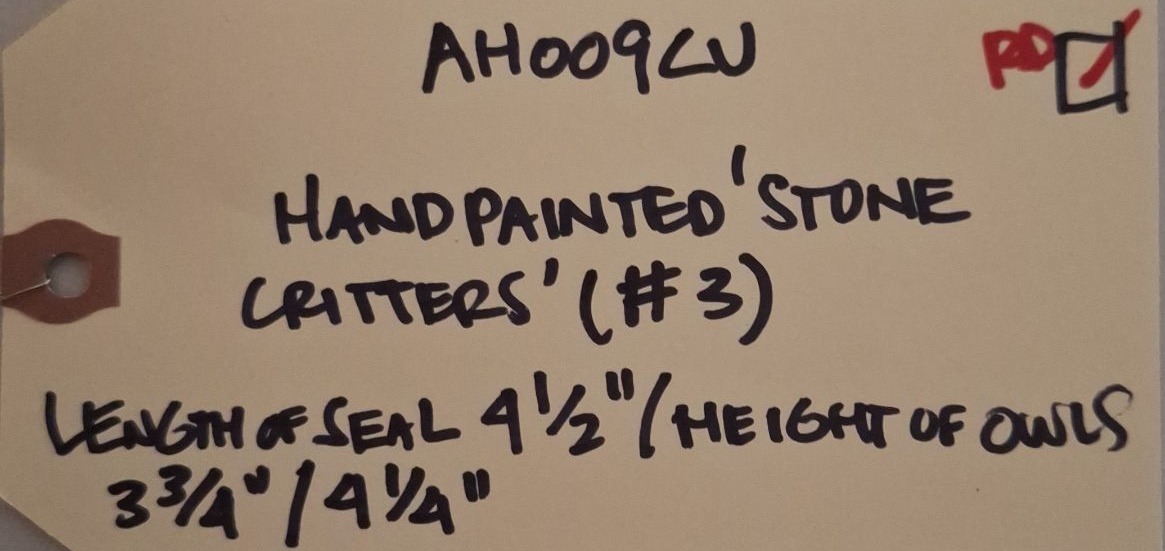 AH009CU
RD
HANDPAINTED 'STONE
CRITTERS' (#3)
LENGTH OF SEAL 4 1/2" / HEIGHT OF OWLS
3 3/4" / 4 1/4"